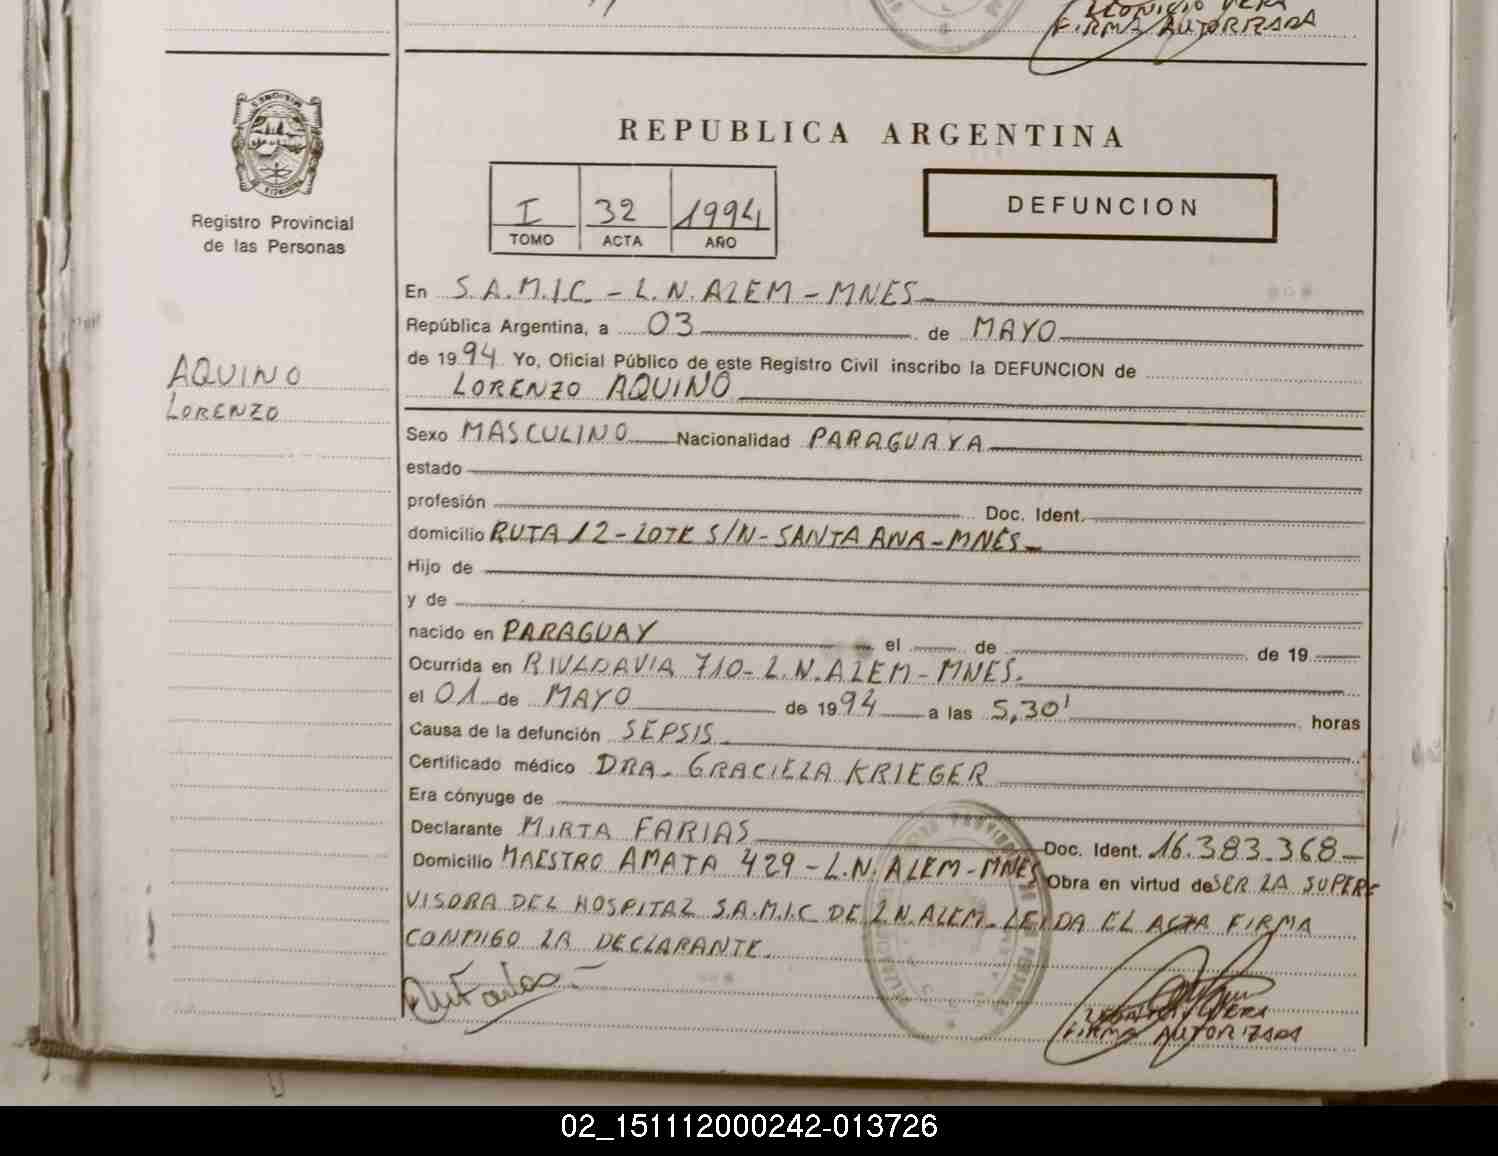 FIRMA AUTORIZADA
Registro Provincial
de las Personas
AQUINO
LORENZO
REPUBLICA ARGENTINA
I 32 1994
TOMO ACTA AÑO
DEFUNCION
En S.A.M.I.C. - L.N. ALEM - MNES
República Argentina, a 03 de MAYO
de 1994 Yo, Oficial Público de este Registro Civil inscribo la DEFUNCION de
LORENZO AQUINO
Sexo MASCULINO Nacionalidad PARAGUAYA
estado
profesión Doc. Ident.
domicilio RUTA 12 - LOTE S/N - SANTA ANA - MNES
Hijo de
y de
nacido en PARAGUAY el de de 19
Ocurrida en RIVADAVIA 710 - L.N. ALEM - MNES.
el 01 de MAYO de 1994 a las 5,30' horas
Causa de la defunción SEPSIS
Certificado médico DRA. GRACIELA KRIEGER
Era cónyuge de
Declarante MIRTA FARIAS Doc. Ident. 16.383.368
Domicilio MAESTRO AMATA 429 - L.N. ALEM - MNES Obra en virtud de SER LA SUPER
VISORA DEL HOSPITAL S.A.M.I.C DE L.N. ALEM - LEIDA EL ACTA FIRMA
CONMIGO LA DECLARANTE.
VERA
FIRMA AUTORIZADA
02_151112000242-013726